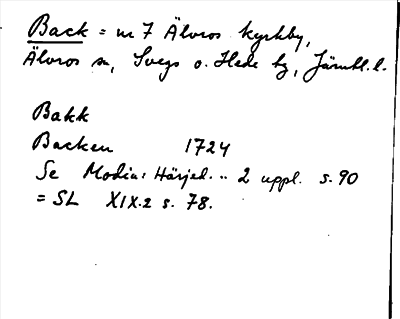 Back = nr 7 Älvros kyrkby,
Älvros sn, Svegs o. Hede tg, Jämtl. l.
Bakk
Backen 1724
Se Modin: Härjed. .. 2 uppl. s. 90
= SL XIX.2 s. 78.